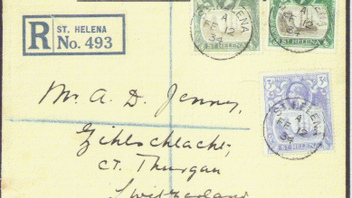 R ST. HELENA
No. 493
ST. HELENA
ST. HELENA
3d
ST. HELENA
ST HELENA
1
FE 12
34
Mr. A. D. Jenny,
Zihlschlacht,
CT. Thurgau
Switzerland